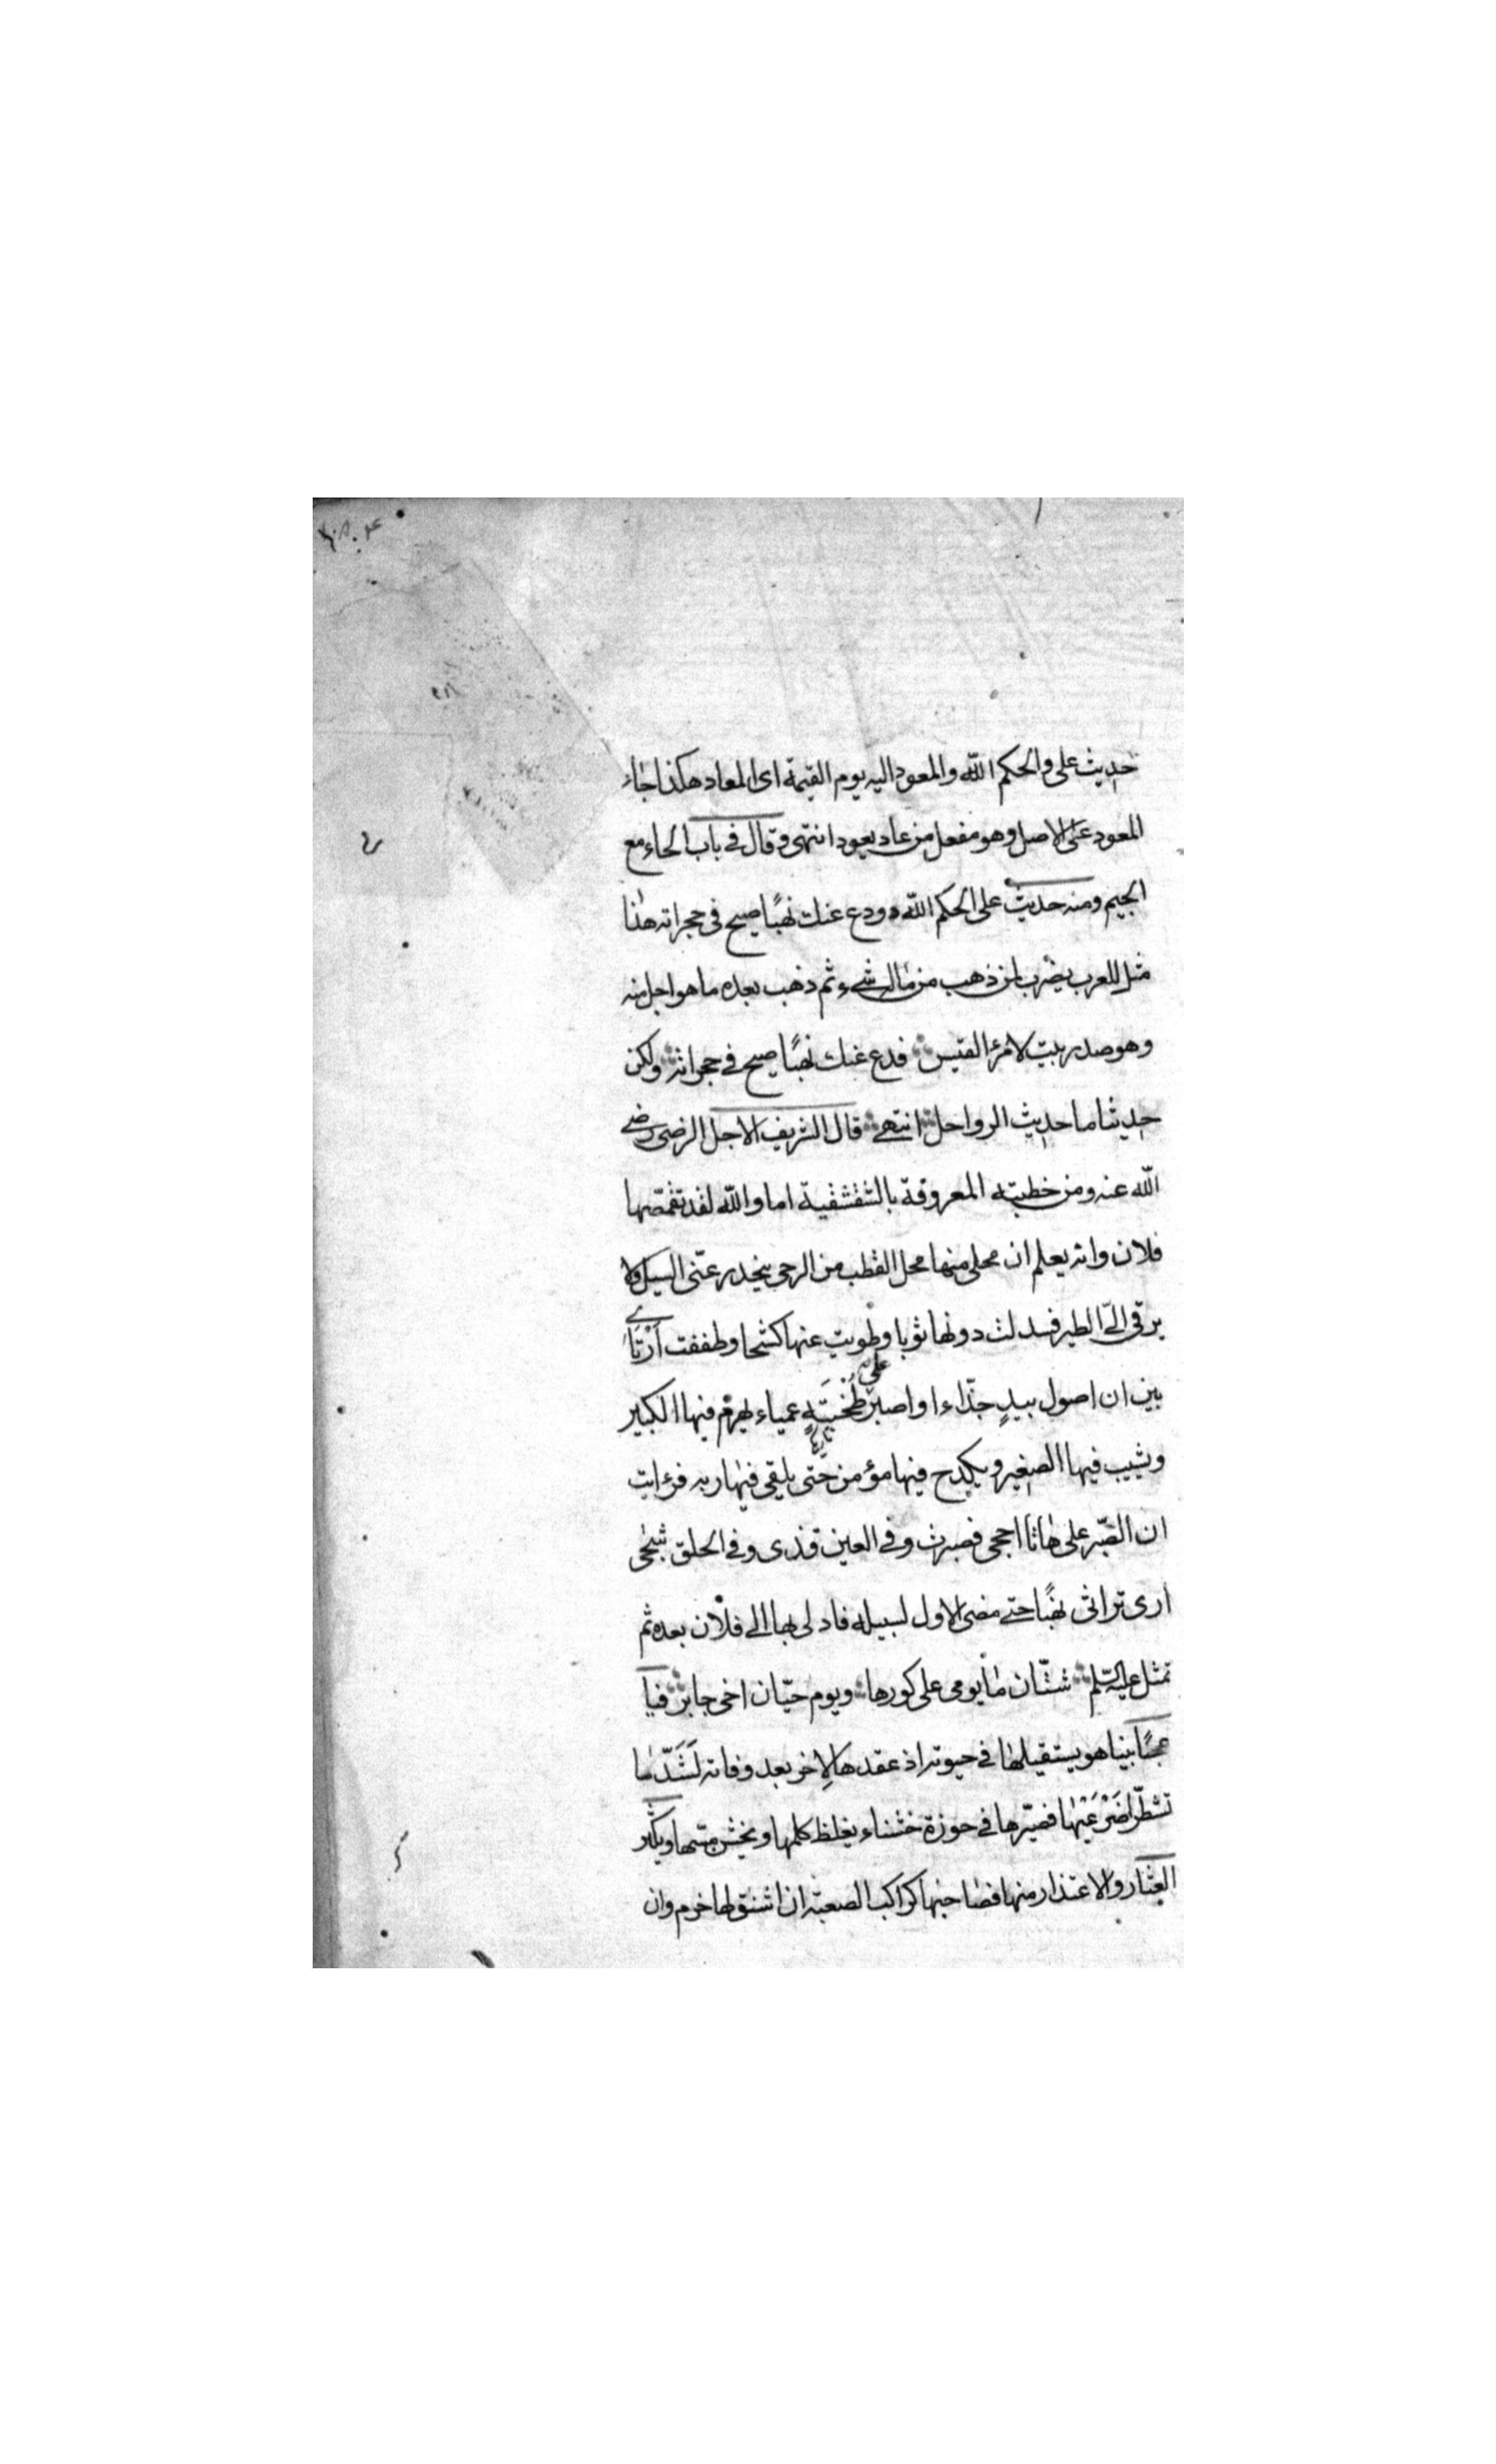 حديث على والحكم الله والمعود اليه يوم القيمة اى المعاد هكذا جاء
المعود على الاصل وهو مفعل من عاد يعود انتهى وقال فى باب الحاء مع
الجيم ومنه حديث على الحكم الله ودع عنك نهبًا صيح فى حجراته هذا
مثل للعرب يضرب لمن ذهب من ماله شىء ثم ذهب بعده ما هو اجل منه
وهو صدر بيت لامرء القيس فدع عنك نهبًا صيح فى حجراته ولكن
حديثا ما حديث الرواحل انتهى قال الشريف الاجل الرضى رضى
الله عنه ومن خطبته المعروفة بالشقشقية اما والله لقد تقمّصها
فلان وانه يعلم ان محلى منها محل القطب من الرحى ينحدر عنّى السيل ولا
يرقى الىّ الطير فسدلت دونها ثوبا وطويت عنها كشحا وطففت ارتاى
بين ان اصول بيدٍ جذّاء او اصبر على طخيةٍ عمياء يهرم فيها الكبير
ويشيب فيها الصغير ويكدح فيها مؤمن حتى يلقى فيها ربه فرءايت
ان الصّبر على هاتا احجى فصبرت وفى العين قذى وفى الحلق شجى
ارى تراثى نهبًا حتى مضى الاول لسبيله فادلى بها الى فلان بعده ثم
تمثل عليه السّلم شتّان ما يومى على كورها ويوم حيّان اخى جابر فيا
عجبًا بينا هو يستقيلها فى حيوته اذ عقدها لاخر بعد وفاته لَشَدَّ ما
تشطّرا ضَرْعَيْها فصيّرها فى حوزة خشناء يغلظ كلمها ويخشن مسّها ويكثر
العِثار والاعتذار منها فصاحبها كراكب الصعبة ان اشنق لها خرم وان